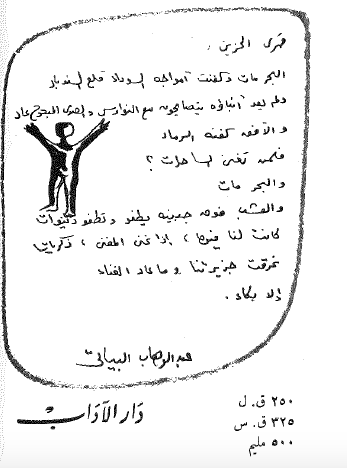 قمري الحزين :
البحر مات وكفنت أمواجه السوداء قلع السندباد
ولم يعد أبناؤه يتصايحون مع النوارس والصدى المبحوح عاد
والأفق كفنه الرماد
فلمن تغني الساحرات ؟
والبحر مات
والعشب فوق جبينه يطفو وتطفو دنيوات
كانت لنا فيها ، إذا غنى المغني ، ذكريات
غرقت جزيرتنا وما عاد الغناء
إلا بكاء .
عبد الوهاب البياتي
دار الآداب
٢٥٠ ق. ل
٣٢٥ ق. س
٥٠٠ مليم